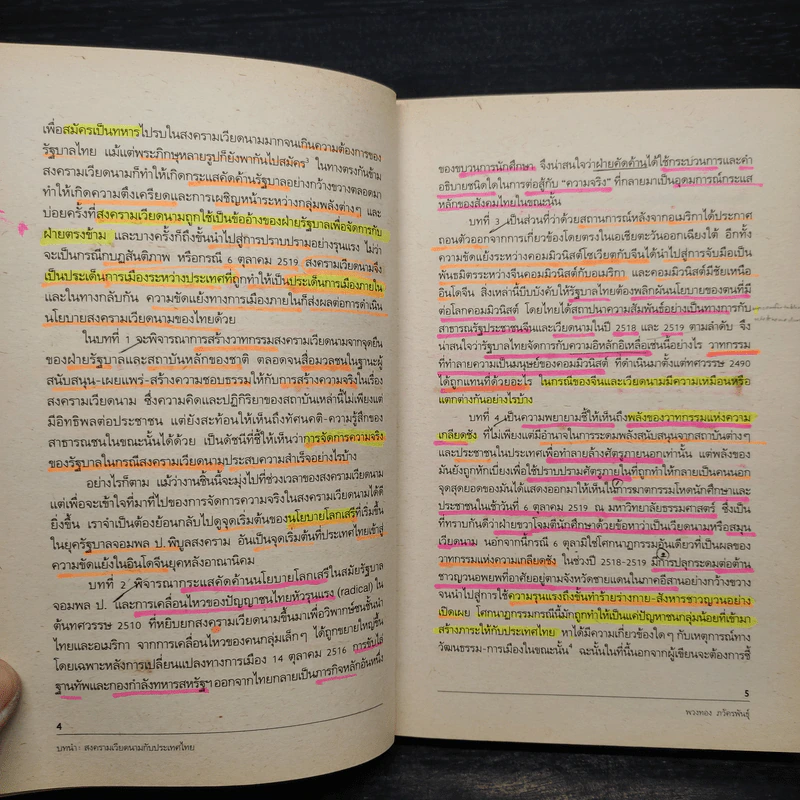 เพื่อสมัครเป็นทหารไปรบในสงครามเวียดนามมากจนเกินความต้องการของ
รัฐบาลไทย แม้แต่พระภิกษุหลายรูปก็ยังพากันไปสมัคร³ ในทางตรงกันข้าม
สงครามเวียดนามก็ทำให้เกิดกระแสคัดค้านรัฐบาลอย่างกว้างขวางตลอดมา
ทำให้เกิดความตึงเครียดและการเผชิญหน้าระหว่างกลุ่มพลังต่างๆ และ
บ่อยครั้งที่สงครามเวียดนามถูกใช้เป็นข้ออ้างของฝ่ายรัฐบาลเพื่อจัดการกับ
ฝ่ายตรงข้าม และบางครั้งก็ถึงขั้นนำไปสู่การปราบปรามอย่างรุนแรง ไม่ว่า
จะเป็นกรณีกบฏสันติภาพ หรือกรณี 6 ตุลาคม 2519 สงครามเวียดนามจึง
เป็นประเด็นการเมืองระหว่างประเทศที่ถูกทำให้เป็นประเด็นการเมืองภายใน
และในทางกลับกัน ความขัดแย้งทางการเมืองภายในก็ส่งผลต่อการดำเนิน
นโยบายสงครามเวียดนามของไทยด้วย
ในบทที่ 1 จะพิจารณาการสร้างวาทกรรมสงครามเวียดนามจากจุดยืน
ของฝ่ายรัฐบาลและสถาบันหลักของชาติ ตลอดจนสื่อมวลชนในฐานะผู้
สนับสนุน-เผยแพร่-สร้างความชอบธรรมให้กับการสร้างความจริงในเรื่อง
สงครามเวียดนาม ซึ่งความคิดและปฏิกิริยาของสถาบันเหล่านี้ไม่เพียงแต่
มีอิทธิพลต่อประชาชน แต่ยังสะท้อนให้เห็นถึงทัศนคติ-ความรู้สึกของ
สาธารณชนในขณะนั้นได้ด้วย เป็นดัชนีที่ชี้ให้เห็นว่าการจัดการความจริง
ของรัฐบาลในกรณีสงครามเวียดนามประสบความสำเร็จอย่างไรบ้าง
อย่างไรก็ตาม แม้ว่างานชิ้นนี้จะมุ่งไปที่ช่วงเวลาของสงครามเวียดนาม
แต่เพื่อจะเข้าใจที่มาที่ไปของการจัดการความจริงในสงครามเวียดนามได้ดี
ยิ่งขึ้น เราจำเป็นต้องย้อนกลับไปดูจุดเริ่มต้นของนโยบายโลกเสรีที่เริ่มขึ้น
ในยุครัฐบาลจอมพล ป. พิบูลสงคราม อันเป็นจุดเริ่มต้นที่ประเทศไทยเข้าสู่
ความขัดแย้งในอินโดจีนยุคหลังอาณานิคม
บทที่ 2 พิจารณากระแสคัดค้านนโยบายโลกเสรีในสมัยรัฐบาล
จอมพล ป. และการเคลื่อนไหวของปัญญาชนไทยหัวรุนแรง (radical) ใน
ต้นทศวรรษ 2510 ที่หยิบยกสงครามเวียดนามขึ้นมาเพื่อวิพากษ์ชนชั้นนำ
ไทยและอเมริกา จากการเคลื่อนไหวของคนกลุ่มเล็กๆ ได้ขยายใหญ่ขึ้น
โดยเฉพาะหลังการเปลี่ยนแปลงทางการเมือง 14 ตุลาคม 2516 การขับไล่
ฐานทัพและกองกำลังทหารสหรัฐฯ ออกจากไทยกลายเป็นภารกิจหลักอันหนึ่ง
4
บทนำ : สงครามเวียดนามกับประเทศไทย
ของขบวนการนักศึกษา จึงน่าสนใจว่าฝ่ายคัดค้านได้ใช้กระบวนการและคำ
อธิบายชนิดใดในการต่อสู้กับ "ความจริง" ที่กลายมาเป็นอุดมการณ์กระแส
หลักของสังคมไทยในขณะนั้น
บทที่ 3 เป็นส่วนที่ว่าด้วยสถานการณ์หลังจากอเมริกาได้ประกาศ
ถอนตัวออกจากการเกี่ยวข้องโดยตรงในเอเชียตะวันออกเฉียงใต้ อีกทั้ง
ความขัดแย้งระหว่างคอมมิวนิสต์โซเวียตกับจีนได้นำไปสู่การจับมือเป็น
พันธมิตรระหว่างจีนคอมมิวนิสต์กับอเมริกา และคอมมิวนิสต์มีชัยเหนือ
อินโดจีน สิ่งเหล่านี้บีบบังคับให้รัฐบาลไทยต้องพลิกผันนโยบายของตนที่มี
ต่อโลกคอมมิวนิสต์ โดยไทยได้สถาปนาความสัมพันธ์อย่างเป็นทางการกับ
สาธารณรัฐประชาชนจีนและเวียดนามในปี 2518 และ 2519 ตามลำดับ จึง
น่าสนใจว่ารัฐบาลไทยจัดการกับความอิหลักอิเหลื่อเช่นนี้อย่างไร วาทกรรม
ที่ทำลายความเป็นมนุษย์ของคอมมิวนิสต์ ที่ดำเนินมาตั้งแต่ทศวรรษ 2490
ได้ถูกแทนที่ด้วยอะไร ในกรณีของจีนและเวียดนามมีความเหมือนหรือ
แตกต่างกันอย่างไรบ้าง
บทที่ 4 เป็นความพยายามชี้ให้เห็นถึงพลังของวาทกรรมแห่งความ
เกลียดชัง ที่ไม่เพียงแต่มีอำนาจในการระดมพลังสนับสนุนจากสถาบันต่างๆ
และประชาชนในประเทศเพื่อทำลายล้างศัตรูภายนอกเท่านั้น แต่พลังของ
มันยังถูกหักเบี่ยงเพื่อใช้ปราบปรามศัตรูภายในที่ถูกทำให้กลายเป็นคนนอก
จุดสุดยอดของมันได้แสดงออกมาให้เห็นในการฆาตกรรมโหดนักศึกษาและ
ประชาชนในเช้าวันที่ 6 ตุลาคม 2519 ณ มหาวิทยาลัยธรรมศาสตร์ ซึ่งเป็น
ที่ทราบกันดีว่าฝ่ายขวาโจมตีนักศึกษาด้วยข้อหาว่าเป็นเวียดนามหรือสมุน
เวียดนาม นอกจากนี้กรณี 6 ตุลามิใช่โศกนาฏกรรมอันเดียวที่เป็นผลของ
วาทกรรมแห่งความเกลียดชัง ในช่วงปี 2518-2519 มีการปลุกระดมต่อต้าน
ชาวญวนอพยพที่อาศัยอยู่ตามจังหวัดชายแดนในภาคอีสานอย่างกว้างขวาง
จนนำไปสู่การใช้ความรุนแรงถึงขั้นทำร้ายร่างกาย-สังหารชาวญวนอย่าง
เปิดเผย โศกนาฏกรรมกรณีนี้มักถูกทำให้เป็นแค่ปัญหาชนกลุ่มน้อยที่เข้ามา
สร้างภาระให้กับประเทศไทย หาได้มีความเกี่ยวข้องใดๆ กับเหตุการณ์ทาง
วัฒนธรรม-การเมืองในขณะนั้น⁴ ฉะนั้นในที่นี้นอกจากผู้เขียนจะต้องการชี้
5
พวงทอง ภวัครพันธุ์